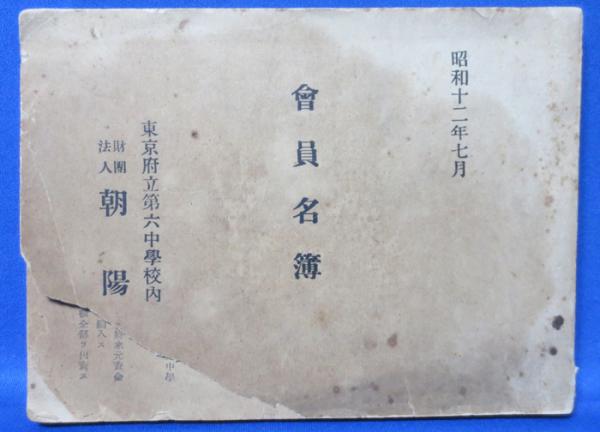 昭和十二年七月
會員名簿
東京府立第六中學校內
財團法人 朝陽
中學